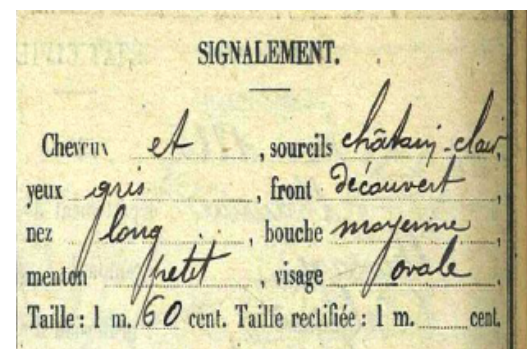 SIGNALEMENT.
Cheveux et , sourcils châtain-clair,
yeux gris , front découvert ,
nez long , bouche moyenne ,
menton petit , visage ovale .
Taille : 1 m. 60 cent. Taille rectifiée : 1 m. ........ cent.